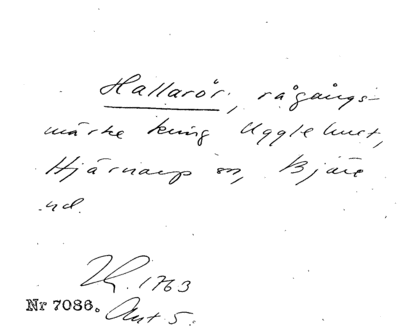 Hallarör, rågångs-
märke kring Ugglehult,
Hjärnarp sn, Bjäre
hd.
1763
Nr 7086. Akt 5.